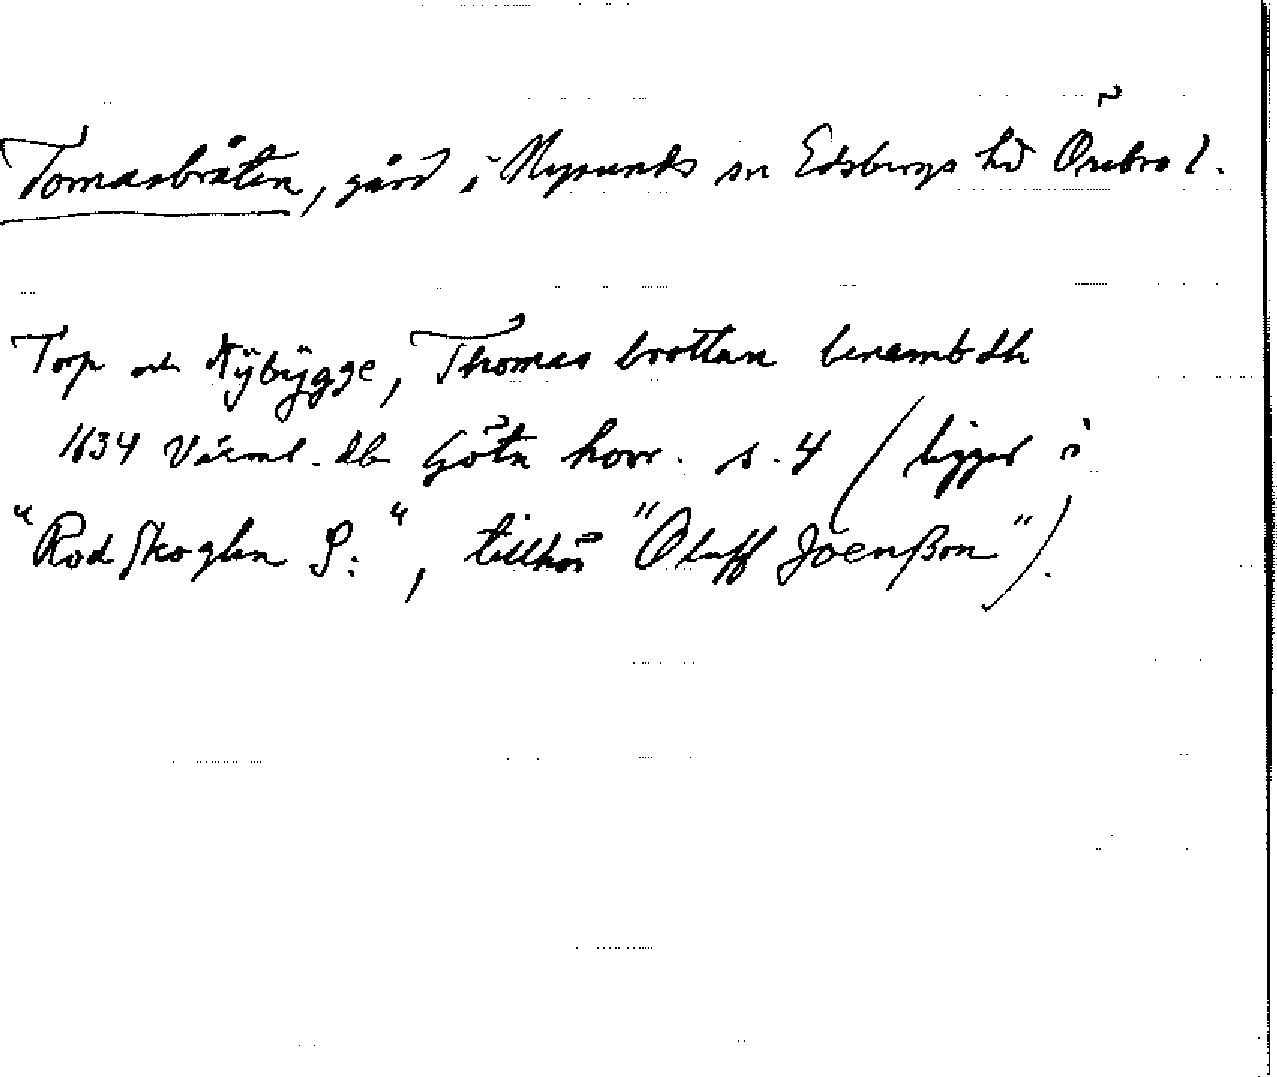 Tomasbråten, gård i Nysunds sn Edsbergs hd Örebro l.
Torp och Nÿbÿgge, Thomas brottan benembdh
1634 Värml. db Göta hovr. s. 4 (ligger i
"Rodskoghen S:", tillhör "Oluff Joenßon").